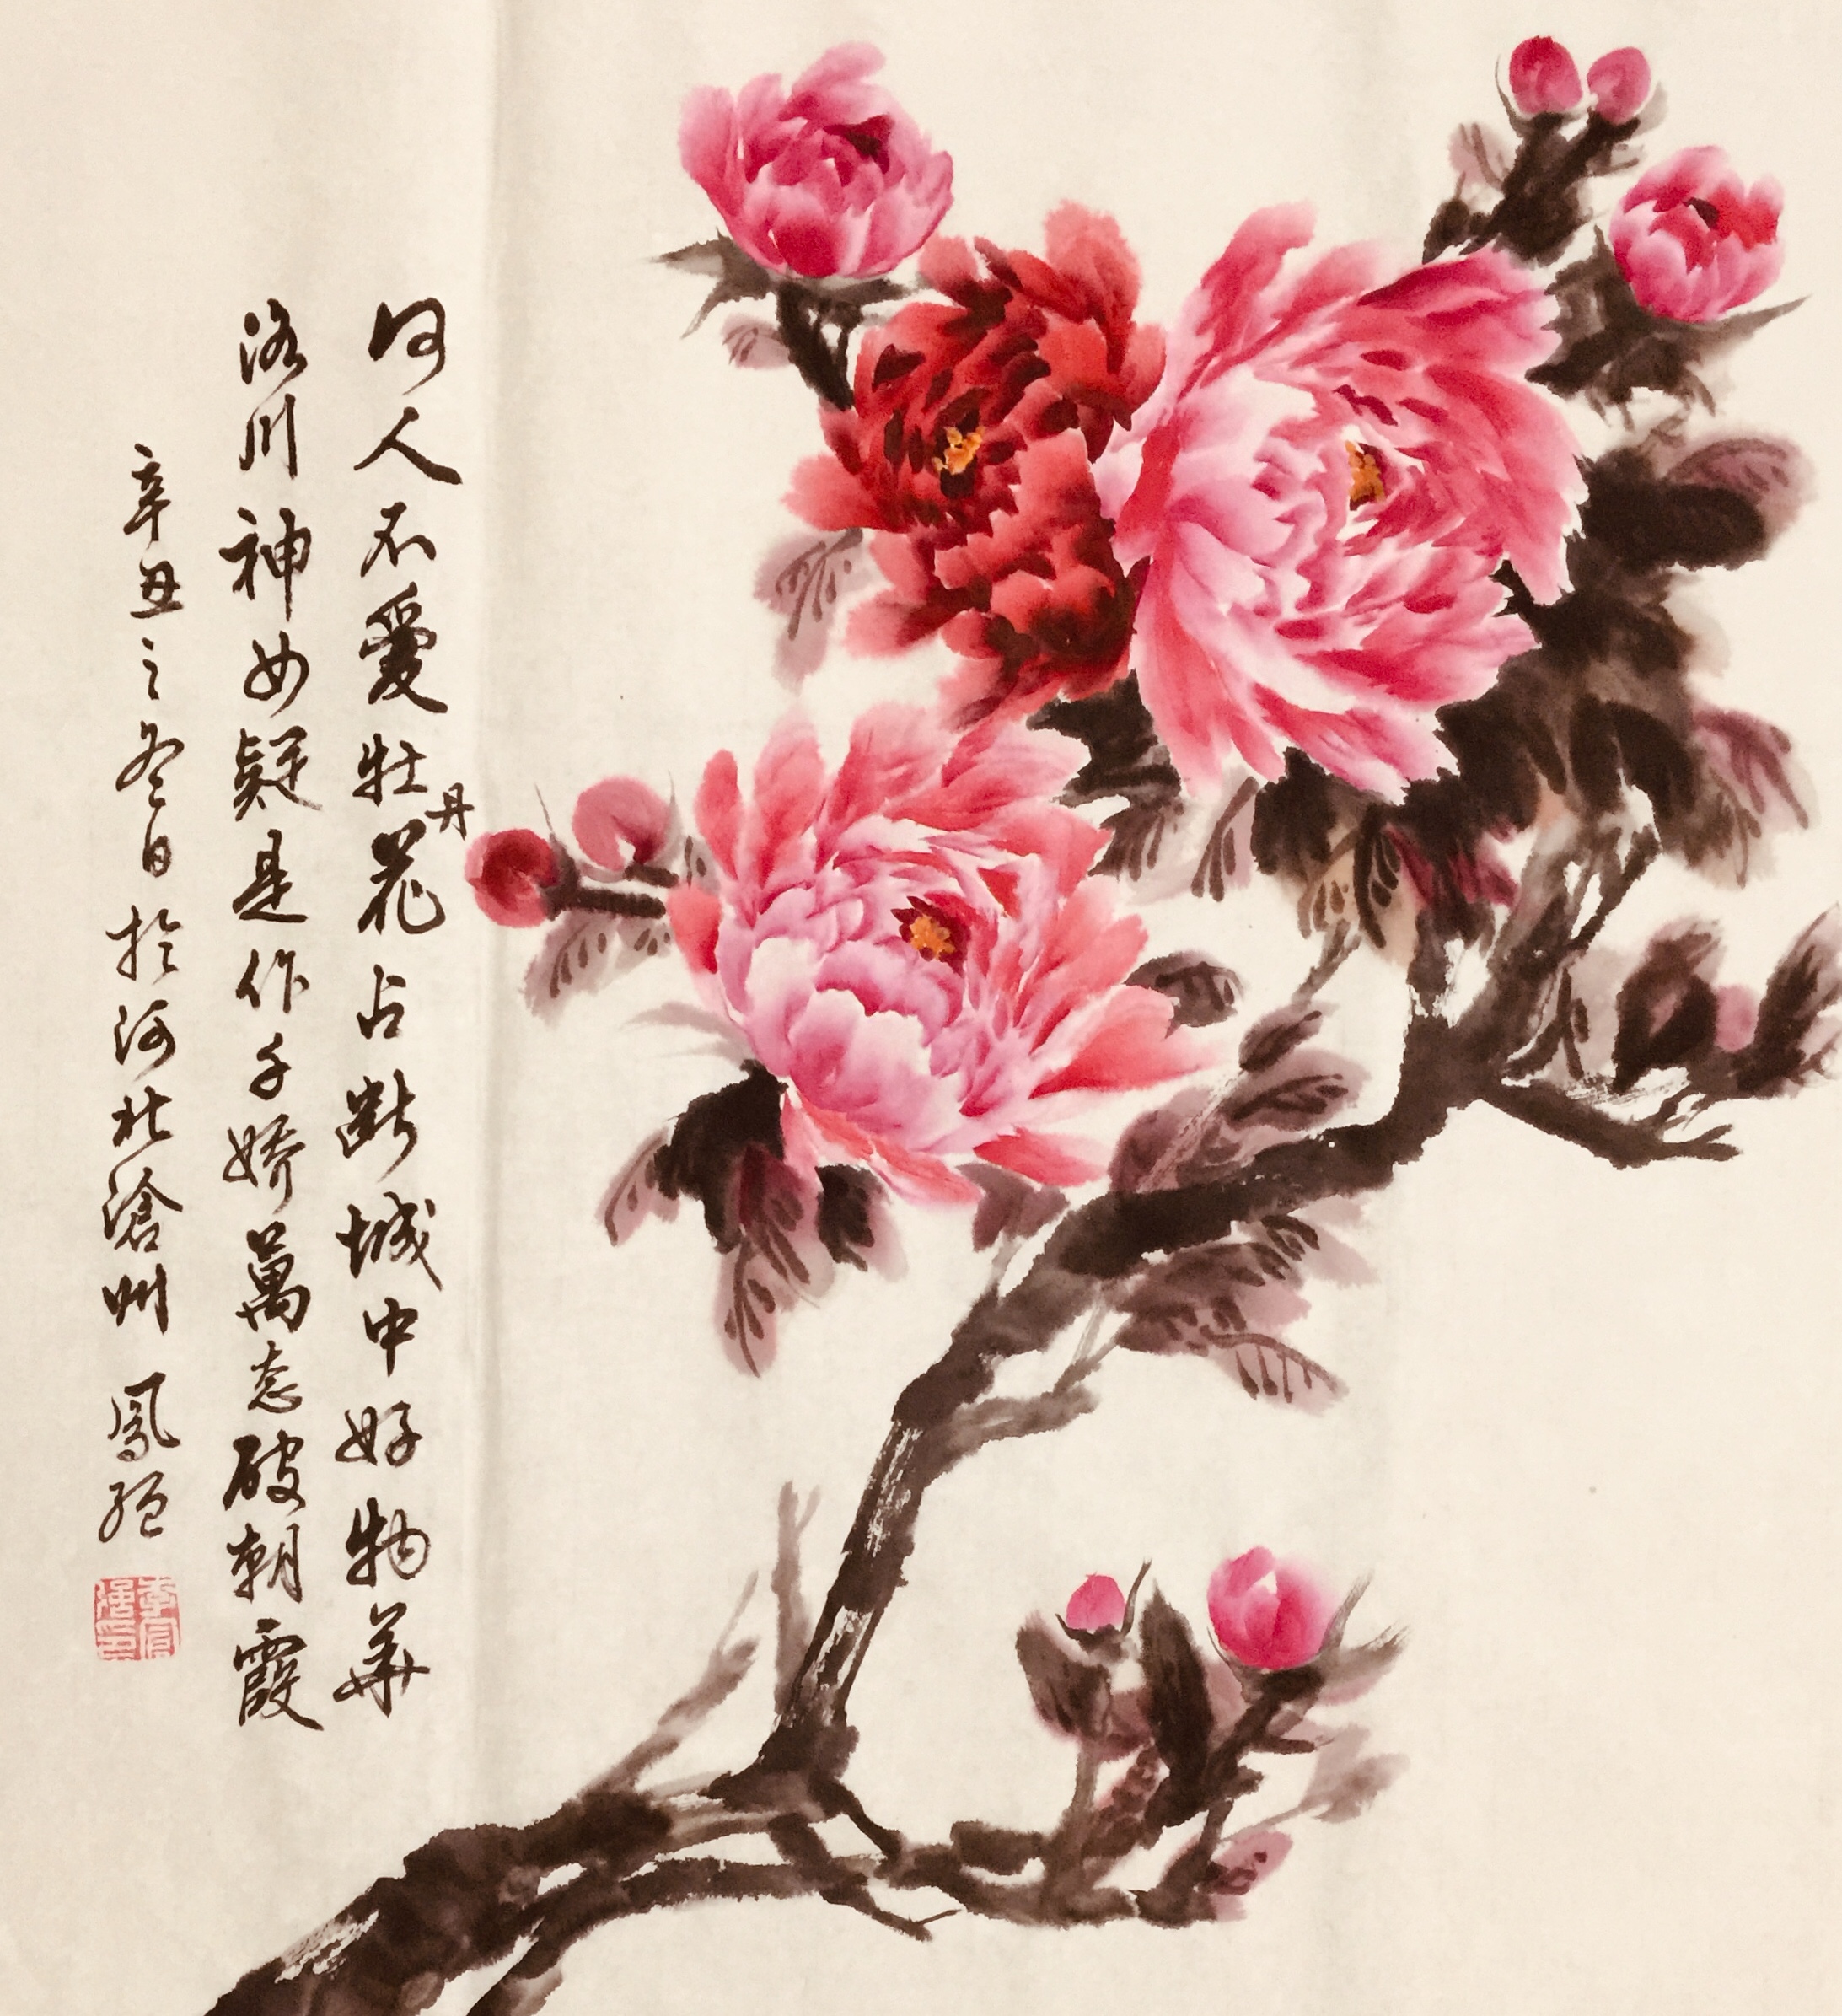 何人不愛牡丹花占斷城中好物華
洛川神女疑是作千嬌萬态破朝霞
辛丑之冬日於河北滄州鳳